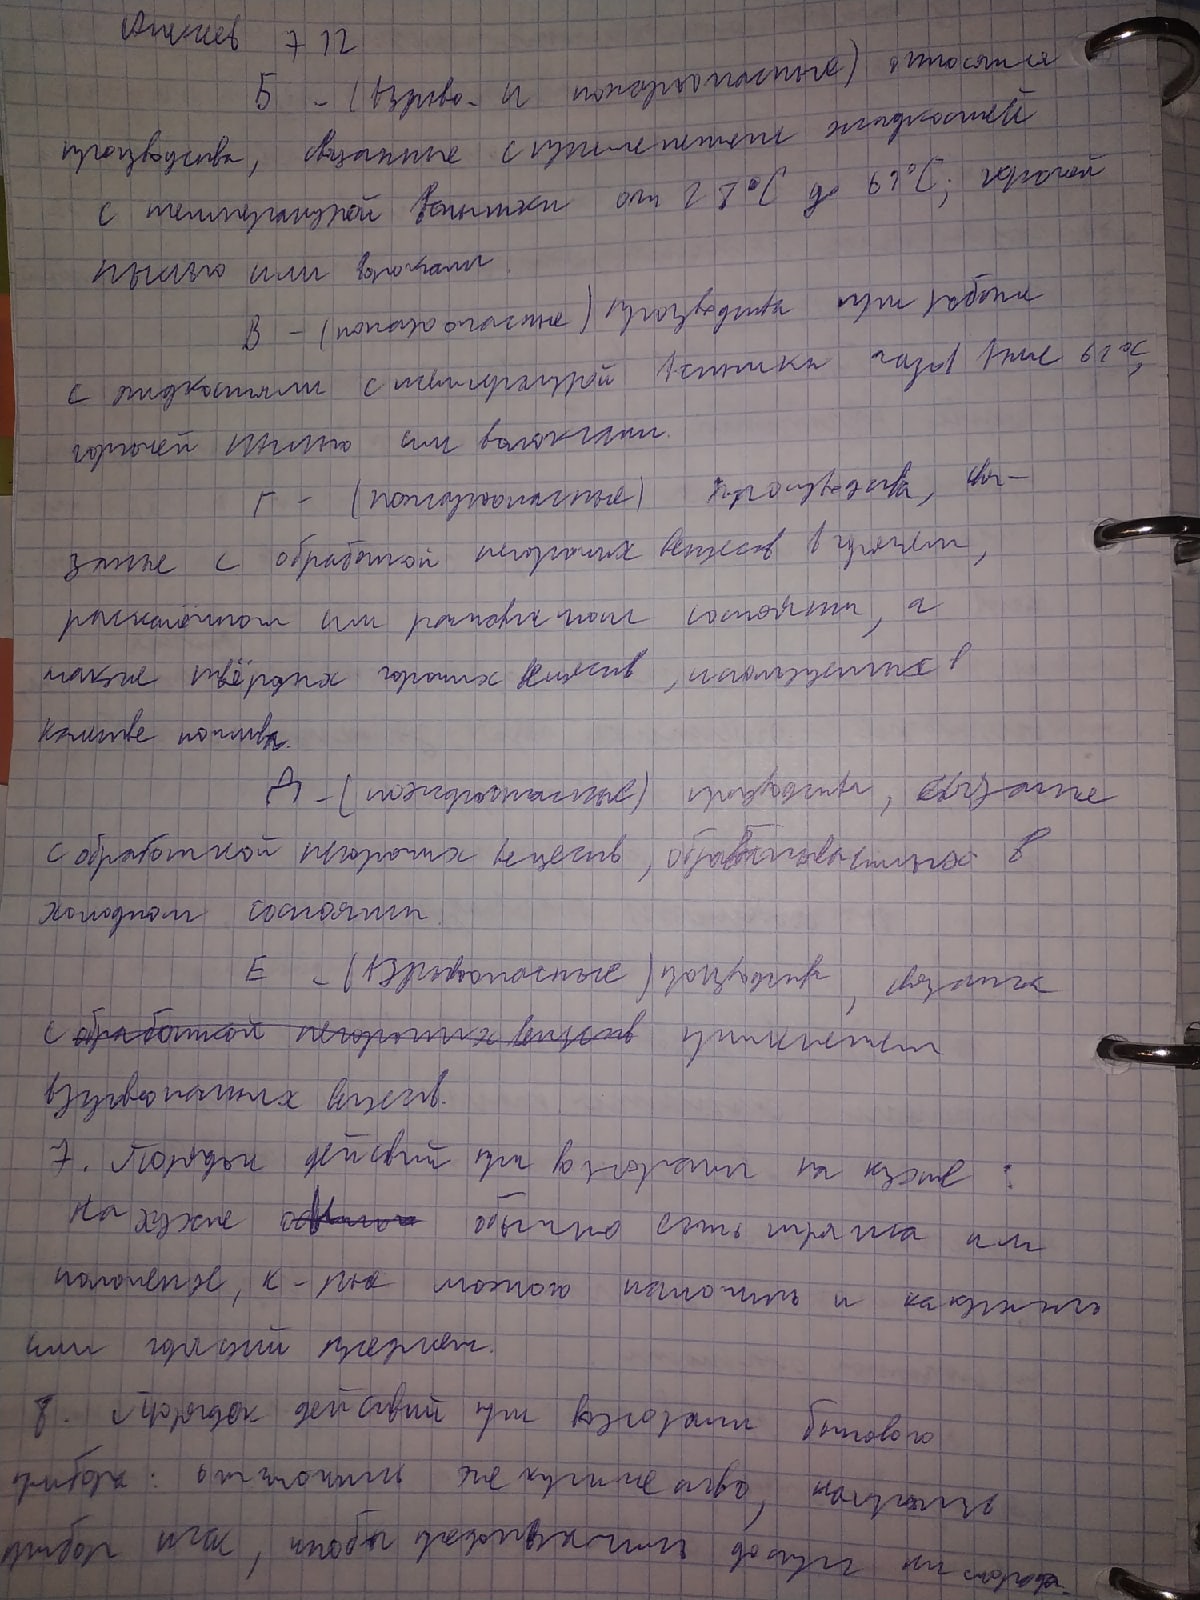 7 12
Б - (взрыво- и пожароопасные) относятся
производства, связанные с применением жидкостей
с температурой вспышки от 28°С до 61°С; горючей
пылью или волокнами.
В - (пожароопасные) производства при работе
с жидкостями с температурой вспышки паров выше 61°С,
горючей пылью или волокнами.
Г - (пожароопасные) производства, свя-
заные с обработкой негорючих веществ в горячем,
раскалённом или расплавленном состоянии, а
также твёрдых горючих веществ, используемых в
качестве топлива.
Д - (пожароопасные) производства, связаные
с обработкой негорючих веществ, обрабатываемых в
холодном состоянии.
Е - (взрывоопасные) производства, связаные
с обработкой негорючих веществ применением
взрывоопасных веществ.
7. Порядок действий при возгорании на кухне:
На кухне обычно есть тряпка или
полотенце, к-рые можно намочить и накрыть
или горящий предмет.
8. Порядок действий при возгорании бытового
прибора: отключить электричество, накрыть
прибор, чтобы доступ кислорода.